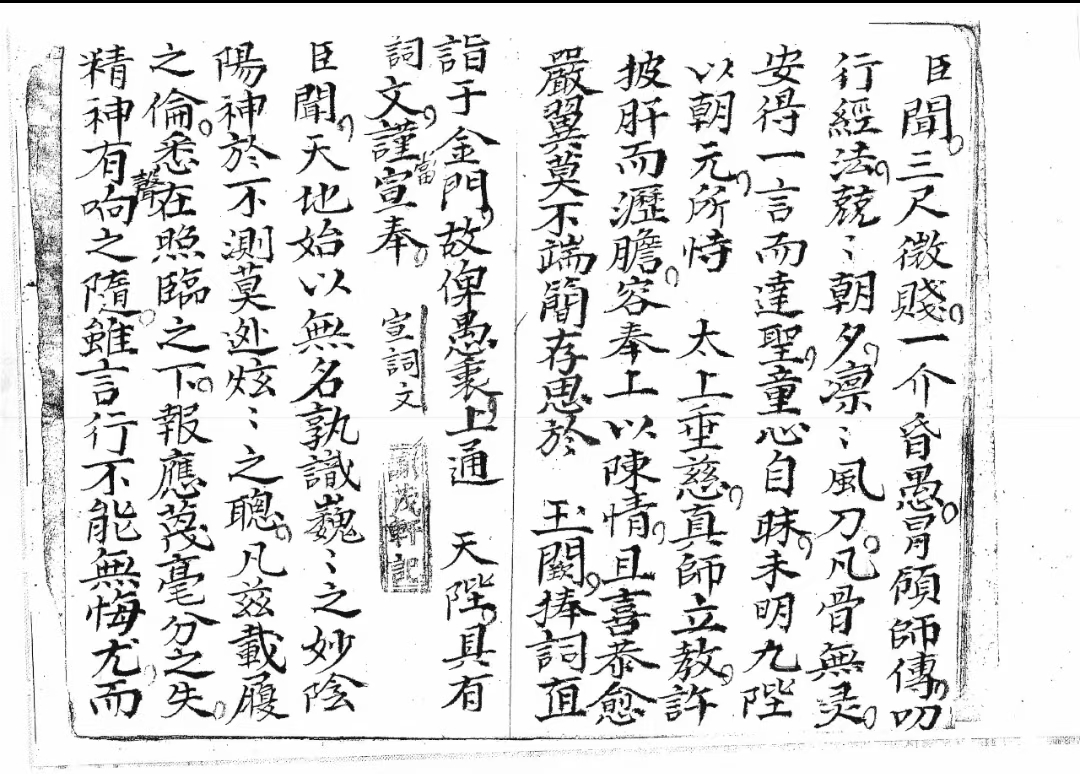 臣聞三尺微賤一介昏愚冐頎師傳叨
行經法兢〻朝夕凛〻風刀凡骨無灵
安得一言而達聖童心自昧未明九陛
以朝元所恃　太上垂慈真師立教許
披肝而瀝膽容奉上以陳情且喜恭愈
嚴翼莫不端簡存思於　玉闕捧詞亟
詣于金門故俾愚衷上通　天陛具有
詞文謹當宣奉　宣詞文
茂軒記
臣聞天地始以無名孰識巍〻之妙陰
陽神於不測莫迯炫〻之聰凡兹載履
之倫悉在照臨之下報應蔑毫分之失
精神有响聲之隨雖言行不能無悔尤而